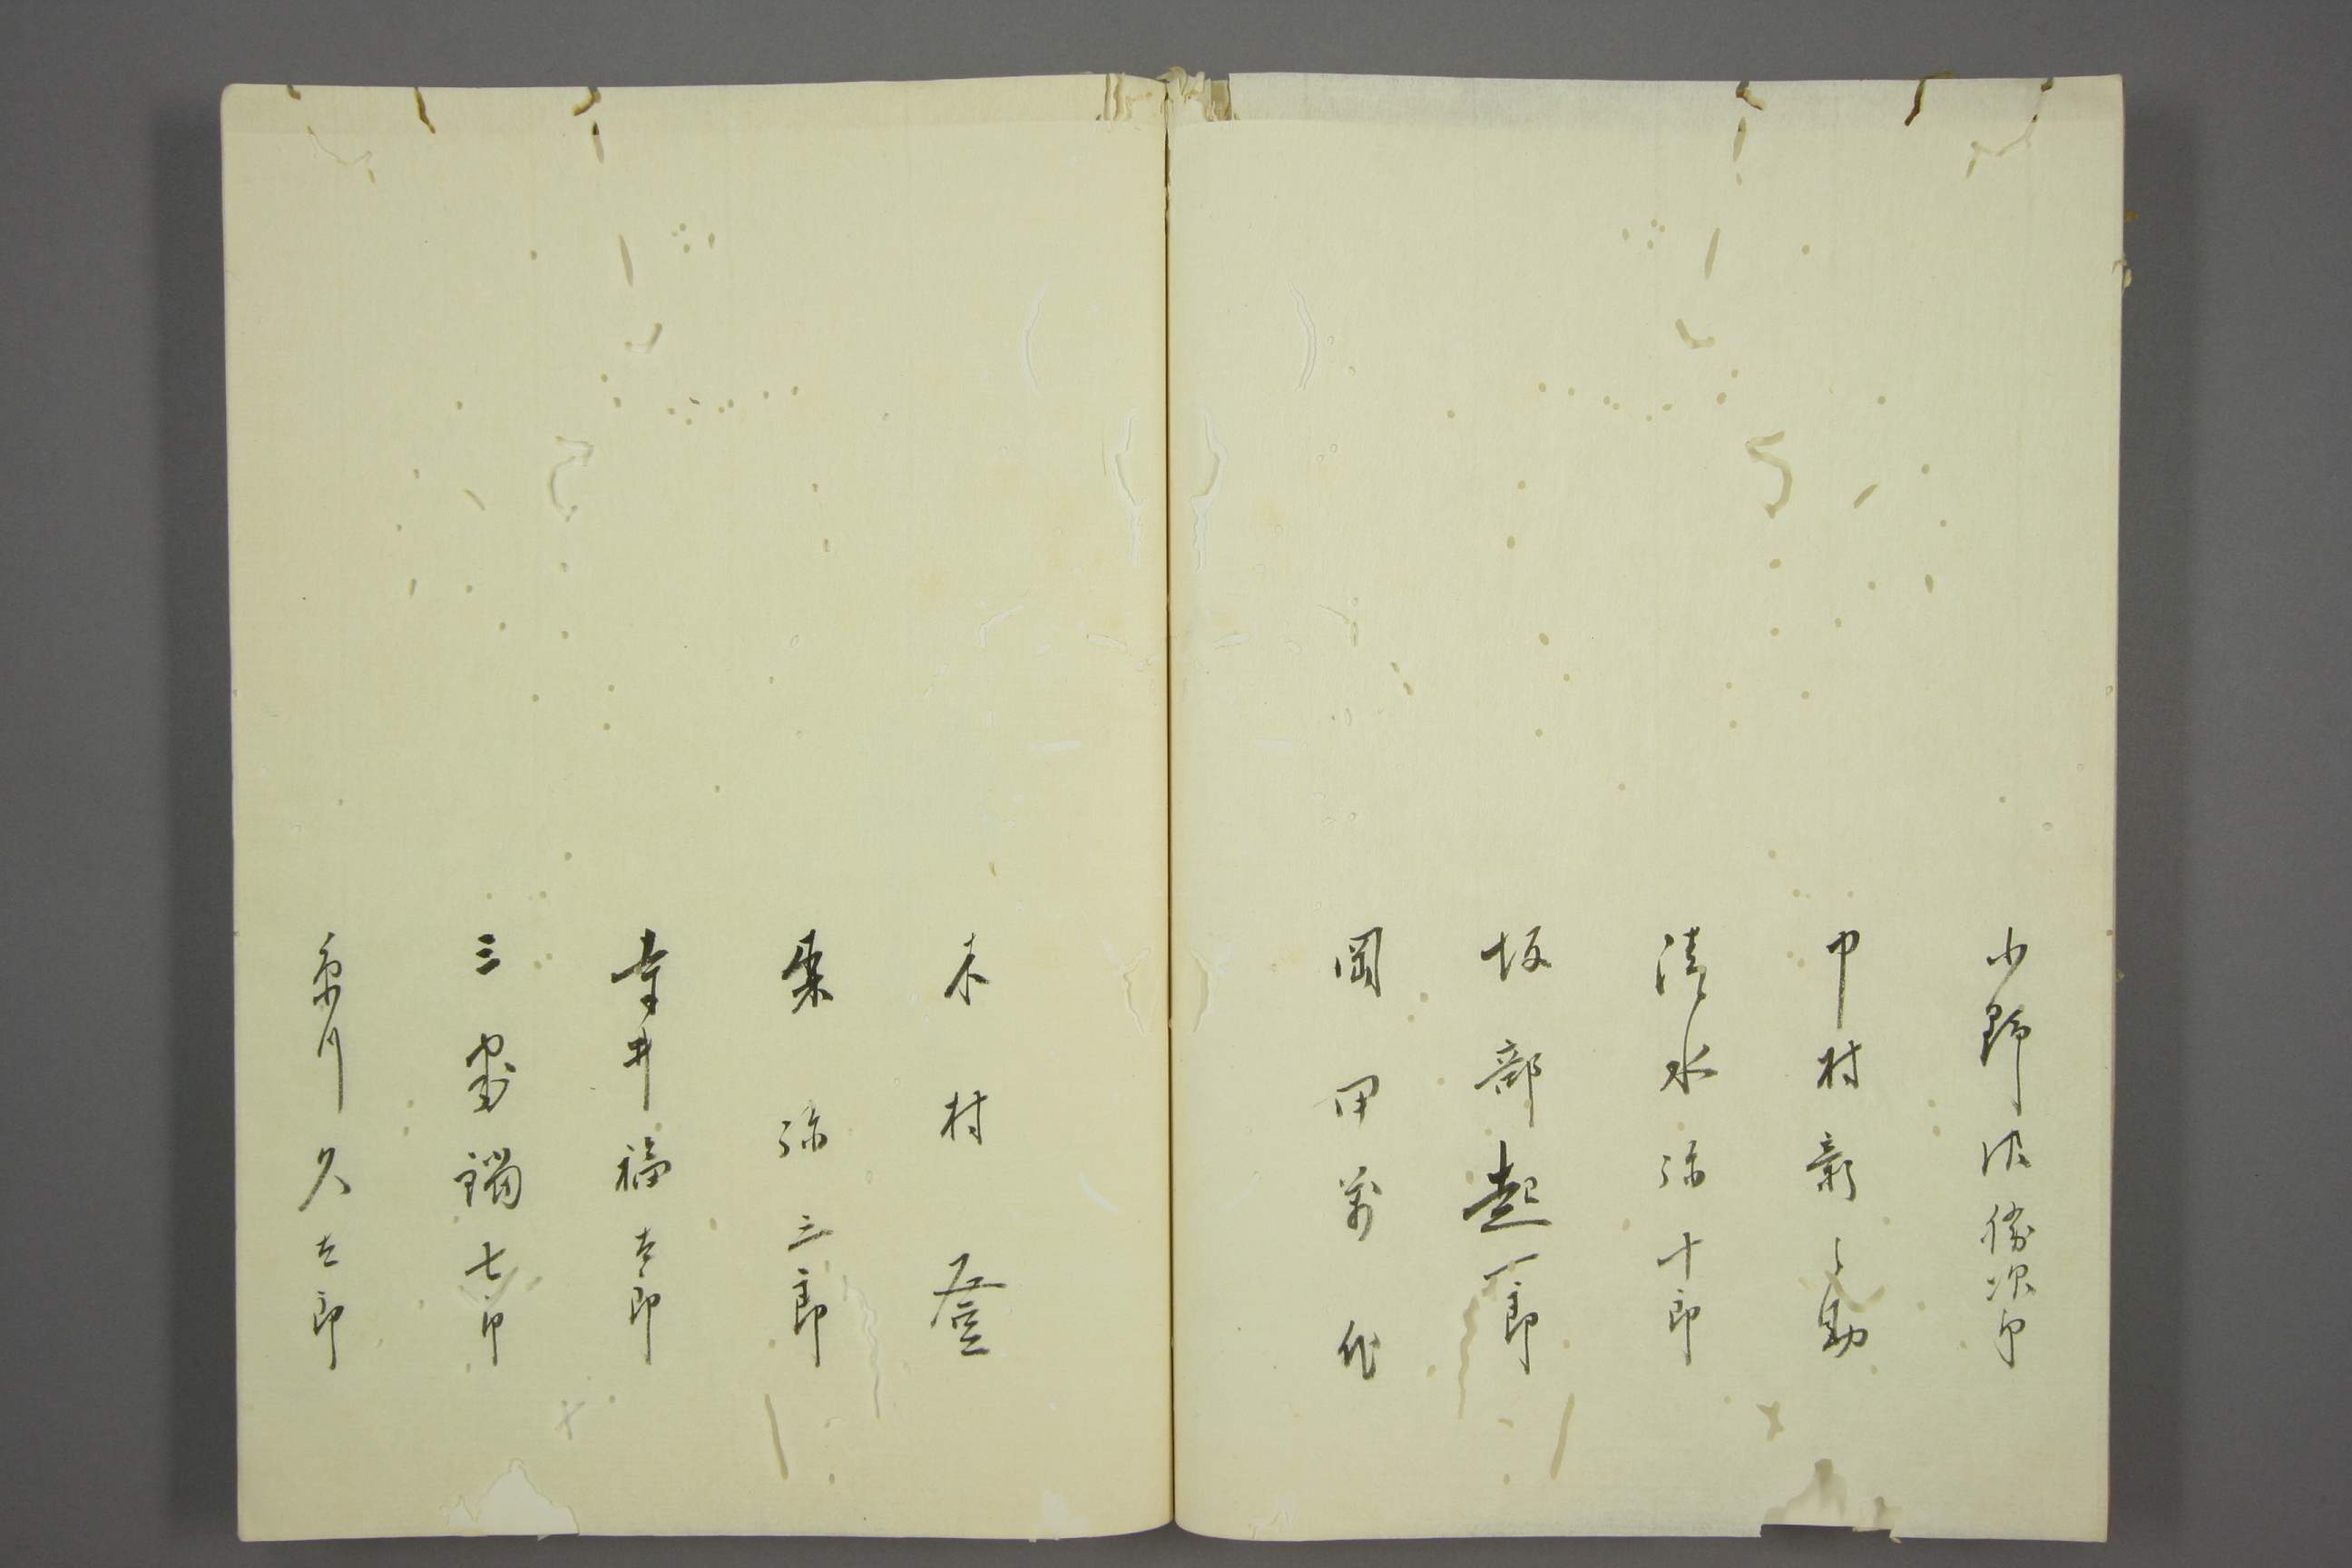 小野沢勝次郎
中村新之助
清水弥十郎
坂部起一郎
岡田前作
木村登
粂弥三郎
幸井福太郎
三宅鐲七郎
糸川久太郎